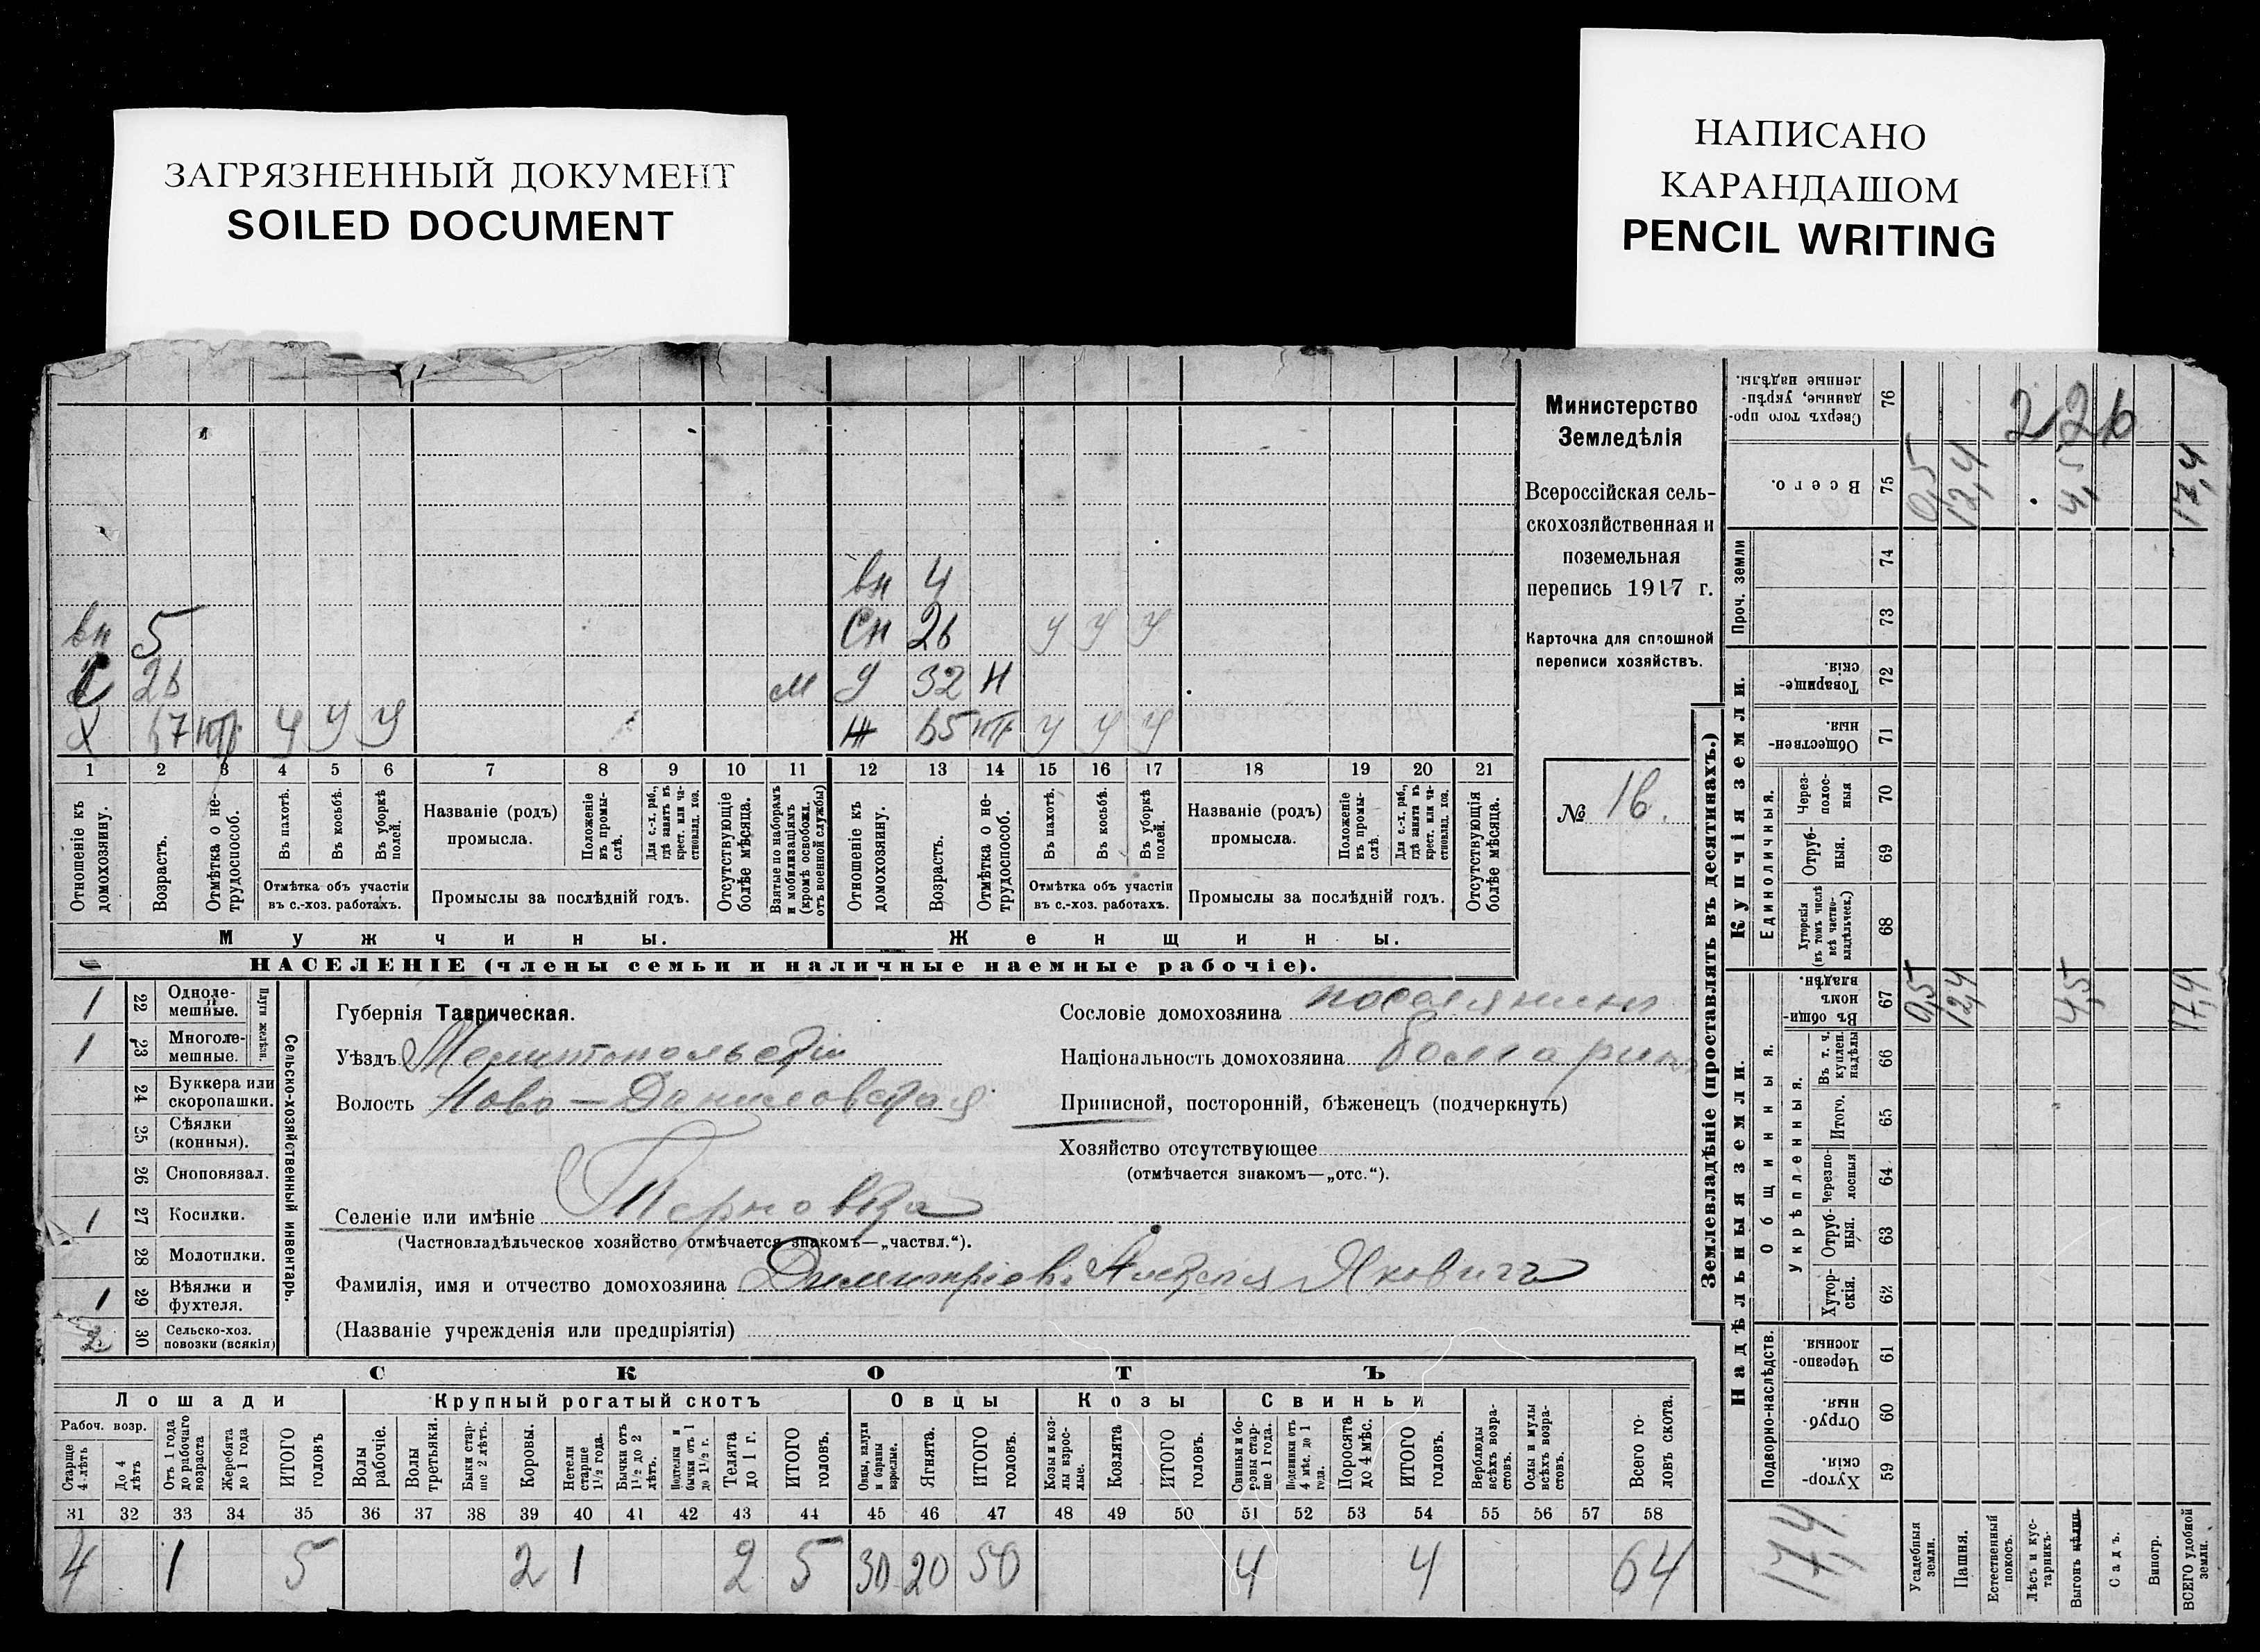 ЗАГРЯЗНЕННЫЙ ДОКУМЕНТ
SOILED DOCUMENT
НАПИСАНО
КАРАНДАШОМ
PENCIL WRITING
Министерство
Земледѣлія
Всероссійская сель-
скохозяйственная и
поземельная
перепись 1917 г.
Карточка для сплошной
переписи хозяйствъ.
№ 16.
226
вн 4
вн 5 Сн 26 У У У
С 26 м 9 32 Н
Х 67 нтр У У У Ж 65 нтр У У У
1 2 3 4 5 6 7 8 9 10 11 12 13 14 15 16 17 18 19 20 21
Отношеніе къ домохозяину.
Возрастъ.
Отмѣтка о не-трудоспособ.
Въ пахотѣ.
Въ косьбѣ.
Въ уборкѣ полей.
Отмѣтка объ участіи
въ с.-хоз. работахъ.
Названіе (родъ)
промысла.
Положеніе въ промы-слѣ.
Для с.-х. раб., гдѣ занятъ въ крест. или ча-стновлад. хоз.
Промыслы за послѣдній годъ.
Отсутствующіе болѣе мѣсяца.
Взятые по наборамъ и мобилизаціямъ (кромѣ освобожд. отъ военной службы)
Отношеніе къ домохозяину.
Возрастъ.
Отмѣтка о не-трудоспособ.
Въ пахотѣ.
Въ косьбѣ.
Въ уборкѣ полей.
Отмѣтка объ участіи
въ с.-хоз. работахъ.
Названіе (родъ)
промысла.
Положеніе въ промы-слѣ.
Для с.-х. раб., гдѣ занята въ крест. или ча-стновлад. хоз.
Промыслы за послѣдній годъ.
Отсутствующія болѣе мѣсяца.
Мужчины. Женщины.
НАСЕЛЕНІЕ (члены семьи и наличные наемные рабочіе).
Сельско-хозяйственный инвентарь.
Плуги желѣзн.
1 22 Одноле-мешные.
1 23 Многоле-мешные.
24 Буккера или скоропашки.
25 Сѣялки (конныя).
26 Сноповязал.
1 27 Косилки.
28 Молотилки.
1 29 Вѣялки и фухтеля.
2 30 Сельско-хоз. повозки (всякія)
Губернія Таврическая.
Уѣздъ Мелитопольскій
Волость Ново-Даниловская
Селеніе или имѣніе Терновка
(Частновладѣльческое хозяйство отмѣчается знакомъ—„частвл.“).
Фамилія, имя и отчество домохозяина Димитріевъ Алексѣй Яковичъ
(Названіе учрежденія или предпріятія)
Сословіе домохозяина поселянинъ
Національность домохозяина болгаринъ
Приписной, посторонній, бѣженецъ (подчеркнуть)
Хозяйство отсутствующее
(отмѣчается знакомъ—„отс.“).
СКОТЪ
Лошади Крупный рогатый скотъ Овцы Козы Свиньи
Рабоч. возр.
Старше 4-лѣтъ
До 4 лѣтъ
Отъ 1 года до рабочаго возраста
Жеребята до 1 года
ИТОГО головъ
Волы рабочіе.
Волы третьяки.
Быки стар-ше 2 лѣтъ.
Коровы.
Нетели старше 1½ года.
Бычки отъ 1½ до 2 лѣтъ.
Подтелки и бычки отъ 1 до 1½ г.
Телята до 1 г.
ИТОГО головъ.
Овцы, валухи и бараны взрослые.
Ягнята.
ИТОГО головъ.
Козы и коз-лы взрос-лые.
Козлята
ИТОГО головъ.
Свиньи и бо-ровы стар-ше 1 года.
Подсвинки отъ 4 мѣс. до 1 года.
Поросята до 4 мѣс.
ИТОГО головъ.
Верблюды всѣхъ возра-стовъ.
Ослы и мулы всѣхъ возра-стовъ.
Всего го-ловъ скота.
31 32 33 34 35 36 37 38 39 40 41 42 43 44 45 46 47 48 49 50 51 52 53 54 55 56 57 58
4 1 5 2 1 2 5 30 20 50 4 4 64
Землевладѣніе (проставлять въ десятинахъ.)
Надѣльныя земли. Купчія земли.
Подворно-наслѣдств.
Общинныя.
Укрѣпленныя.
Единоличныя.
Проч. земли
Сверхъ того про-данные, укрѣп-ленные надѣлы. 76
Всего. 75 0,5 12,4 4,5 17,4
74
73
Товарище-скія. 72
Обществен-ныя 71
Через-полос-ныя 70
Отруб-ныя. 69
Хуторскія (въ томъ числѣ всѣ частно-владѣльческ.) 68
Въ общи-номъ владѣн. 67 0,5 12,4 4,5 17,4
Въ т. ч. куплен. надѣлы 66
Итого. 65
Черезпо-лосныя 64
Отруб-ныя. 63
Хутор-скія. 62
Черезпо-лосныя 61
Отруб-ныя. 60
Хутор-скія. 59
17,4
Усадебныя земли.
Пашня.
Естественный покосъ.
Лѣсъ и кус-тарникъ.
Выгонъ цѣлин.
Садъ.
Виногр.
ВСЕГО удобной земли.